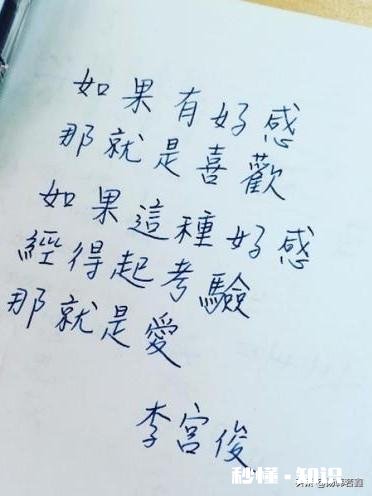 如果有好感
那就是喜歡
如果這種好感
經得起考驗
那就是愛
李宮俊
秒懂·知识